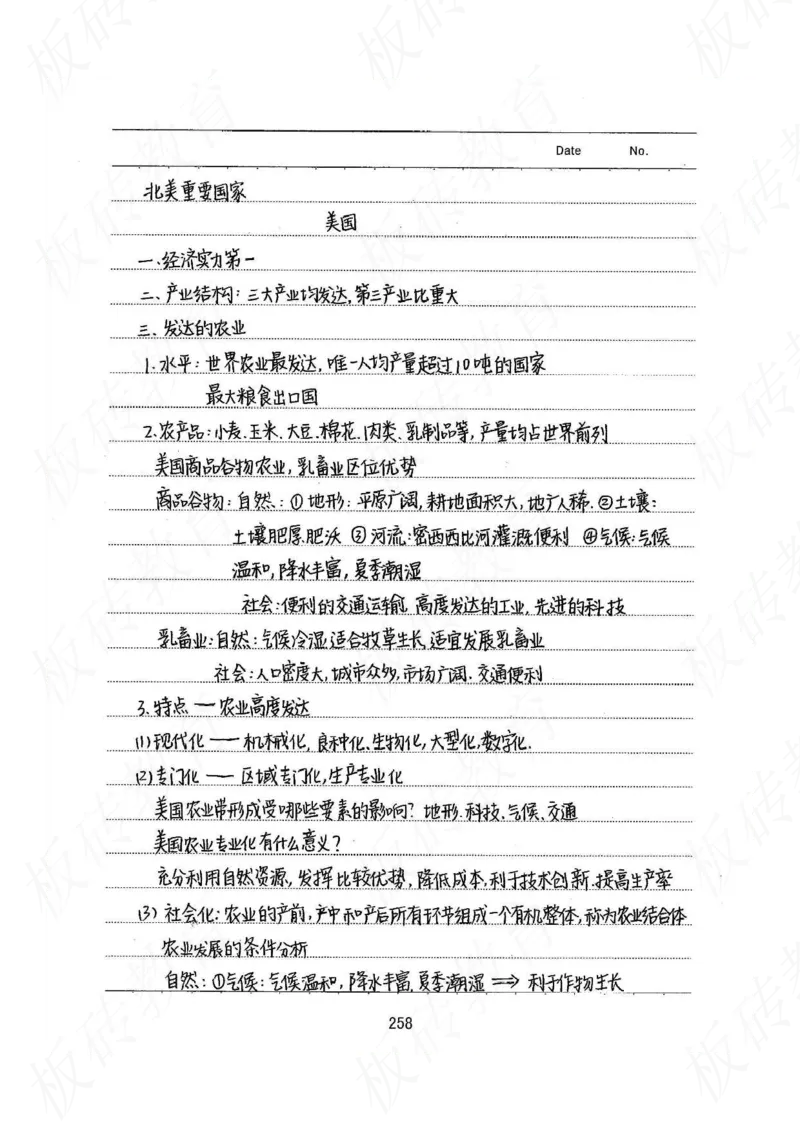 Date No.
北美重要国家
美国
一、经济实力第一
二、产业结构：三大产业均发达，第三产业比重大
三、发达的农业
1.水平：世界农业最发达，唯一人均产量超过10吨的国家
最大粮食出口国
2.农产品：小麦、玉米、大豆、棉花、肉类、乳制品等，产量均占世界前列
美国商品谷物农业，乳畜业区位优势
商品谷物：自然：①地形：平原广阔，耕地面积大，地广人稀.②土壤：
土壤肥厚肥沃 ③河流：密西西比河灌溉便利 ④气候：气候
温和，降水丰富，夏季潮湿
社会：便利的交通运输，高度发达的工业，先进的科技
乳畜业：自然：气候冷湿，适合牧草生长，适宜发展乳畜业
社会：人口密度大，城市众多，市场广阔.交通便利
3.特点一农业高度发达
(1)现代化——机械化，良种化、生物化，大型化，数字化.
(2)专门化——区域专门化，生产专业化
美国农业带形成受哪些要素的影响？地形、科技、气候、交通
美国农业专业化有什么意义？
充分利用自然资源，发挥比较优势，降低成本，利于技术创新.提高生产率
(3)社会化：农业的产前，产中和产后所有环节组成一个有机整体，称为农业结合体
农业发展的条件分析
自然：①气候：气候温和，降水丰富，夏季潮湿⟹利于作物生长
258
板砖教育